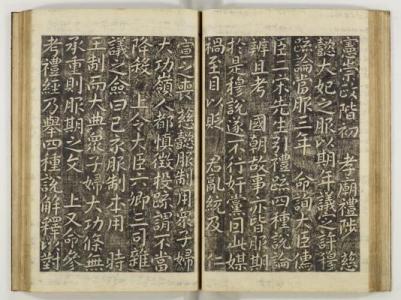 宗 階初 孝廟禮陟 慈
懿大妃之服以期年議之許穆
疏論當服三年 命詢大臣儒
臣二宋先生引禮疏四種說論
辨且考 國朝故事一皆服期
於是穆說遂不行奸黨因此媒
禍至目以貶 君亂統及 仁
宣之喪 慈懿服制用衆子婦
大功嶺人都愼徵投疏謂不當
降殺 上令大臣六卿三司雜
議之僉曰已亥服制本用 時
王制而大典衆子婦大功條無
承重則服期之文 上又命參
考禮經乃舉四種說解釋以對